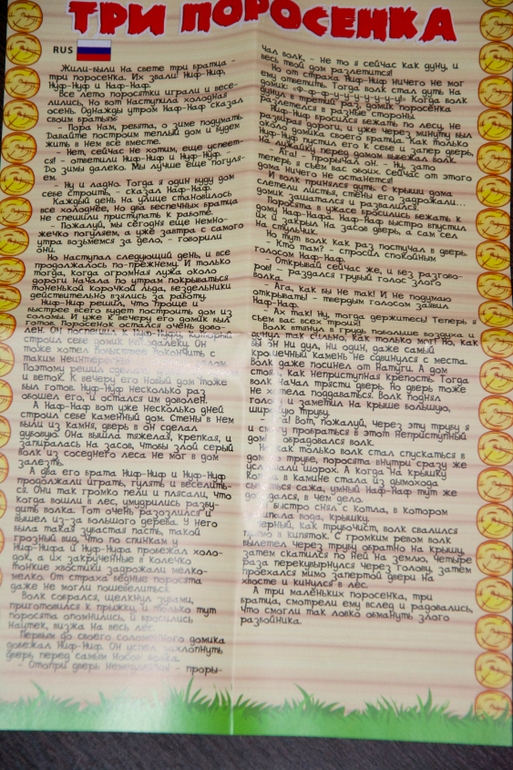 ТРИ ПОРОСЕНКА
RUS
Жили-были на свете три братца -
три поросенка. Их звали Ниф-Ниф,
Нуф-Нуф и Наф-Наф.
Все лето поросятки играли и весе-
лились, но вот наступила холодная
осень. Однажды утром Наф-Наф сказал
своим братьям:
- Пора нам, ребята, о зиме подумать.
Давайте построим теплый дом и будем
жить в нем все вместе.
- Нет, сейчас не хотим, еще успеет-
ся! - ответили Ниф-Ниф и Нуф-Нуф. -
До зимы далеко. Мы лучше еще погуля-
ем.
- Ну и ладно. Тогда я один буду дом
себе строить, - сказал Наф-Наф.
Каждый день на улице становилось
все холоднее, но два беспечных братца
не спешили приступать к работе.
- Пожалуй, мы сегодня еще немно-
жечко погуляем, а уже завтра с самого
утра возьмемся за дело, - говорили
они.
Но наступал следующий день, и все
продолжалось по-прежнему. И только
тогда, когда огромная лужа около
дороги начала по утрам покрываться
тоненькой корочкой льда, бездельники
действительно взялись за работу.
Ниф-Ниф решил, что проще и
быстрее всего будет построить дом из
соломы. И уже к вечеру его домик был
готов. Поросенок остался очень дово-
лен. Он поспешил к
строил себе домик неподалеку. Он
тоже хотел
таким неинтерес
Поэтому решил сделать
и веток. К вечеру его новый дом тоже
был готов. Нуф-Нуф несколько раз
обошел его, и остался им доволен.
А Наф-Наф вот уже несколько дней
строил себе каменный дом. Стены в нем
были из камня, дверь в он сделал
дубовую. Она вышла тяжелая, крепкая, и
запиралась на засов, чтобы злой серый
волк из соседнего леса не мог в дом
залезть.
А два его брата Ниф-Ниф и Нуф-Нуф
продолжали играть, гулять и веселить-
ся. Они так громко пели и плясали, что
когда вошли в лес, умудрились разбу-
дить волка. Тот очень разозлился и
вышел из-за большого дерева. У него
была такая зубастая пасть, такой
грозный вид, что по спинкам и
Ниф-Нифа и Нуф-Нуфа пробежал холо-
док, а их закрученные в колечко
тонкие хвостики задрожали мелко-
мелко. От страха бедные поросята
даже не могли пошевелиться.
Волк собрался, щелкнул зубами,
приготовился к прыжку, и только тут
поросята опомнились, и бросились
наутек, визжа на весь лес.
Первым до своего соломенного домика
добежал Ниф-Ниф. Он успел захлопнуть
дверь перед самым носом волка.
- Отопри дверь немедленно! - проры-
чал волк, - не то я сейчас как дуну, и
весь твой дом разлетится!
Но от страха Ниф-Ниф ничего не мог
ему ответить. Тогда волк стал дуть на
домик:
дунул в третий раз, домик поросенка
разлетелся в разные стороны.
Ниф-Ниф бросился бежать по лесу, не
разбирая дороги, и уже через минуту был
около домика своего братца. Как только
Нуф-Нуф пустил его к себе и запер дверь,
на лужайку перед домом выбежал волк.
- Ага! - прорычал он. - Ну, зато
теперь я съем вас обоих. Сейчас от этого
дома ничего не останется!
И волк принялся дуть. С крыши дома
слетели листья, стены его задрожали...
домик зашатался и развалился.
Поросята в ужасе бросились бежать к
дому Наф-Нафа. Наф-Наф быстро впустил
их и закрыл на засов дверь, а сам сел
на стульчик.
Но тут волк как раз постучал в дверь.
- Кто там? - спросил спокойным
голосом Наф-Наф.
- Открывай сейчас же, и без разгово-
ров! - раздался грубый голос злого
волка.
- Ага, как бы не так! И не подумаю
открывать! - твердым голосом заявил
Наф-Наф.
- Ах так! Ну, тогда держитесь! Теперь я
съем вас всех троих!
Волк втянул в грудь побольше воздуха и
дунул так сильно, как только мог! Но, как
бы он ни дул, ни один, даже самый
крошечный камень не сдвинулся с места.
Волк даже посинел от натуги. А дом
стоял, как неприступная крепость. Тогда
волк начал трясти дверь. Но дверь тоже
не хотела поддаваться. Волк поднял
и заметил на крыше большую,
широкую трубу.
- Вот, пожалуй, через эту трубу я
и смогу пробраться в этот неприступный
дом, - обрадовался волк.
Но как только волк стал спускаться в
дом в трубе, поросята внутри сразу же
услыхали шорох. А когда на крышку
котла в камине стала из дымохода
сыпаться сажа, умный Наф-Наф тут же
догадался, в чем дело.
Он быстро снял с котла, в котором
кипела вода, крышку.
Черный, как трубочист, волк свалился
прямо в кипяток. С громким ревом волк
вылетел через трубу обратно на крышу,
затем скатился по ней на землю, четыре
раза перекувырнулся через голову, затем
проехался мимо запертой двери на
хвосте и кинулся в лес.
А три маленьких поросенка, три
братца, смотрели ему вслед и радовались,
что смогли так ловко обмануть злого
разбойника.